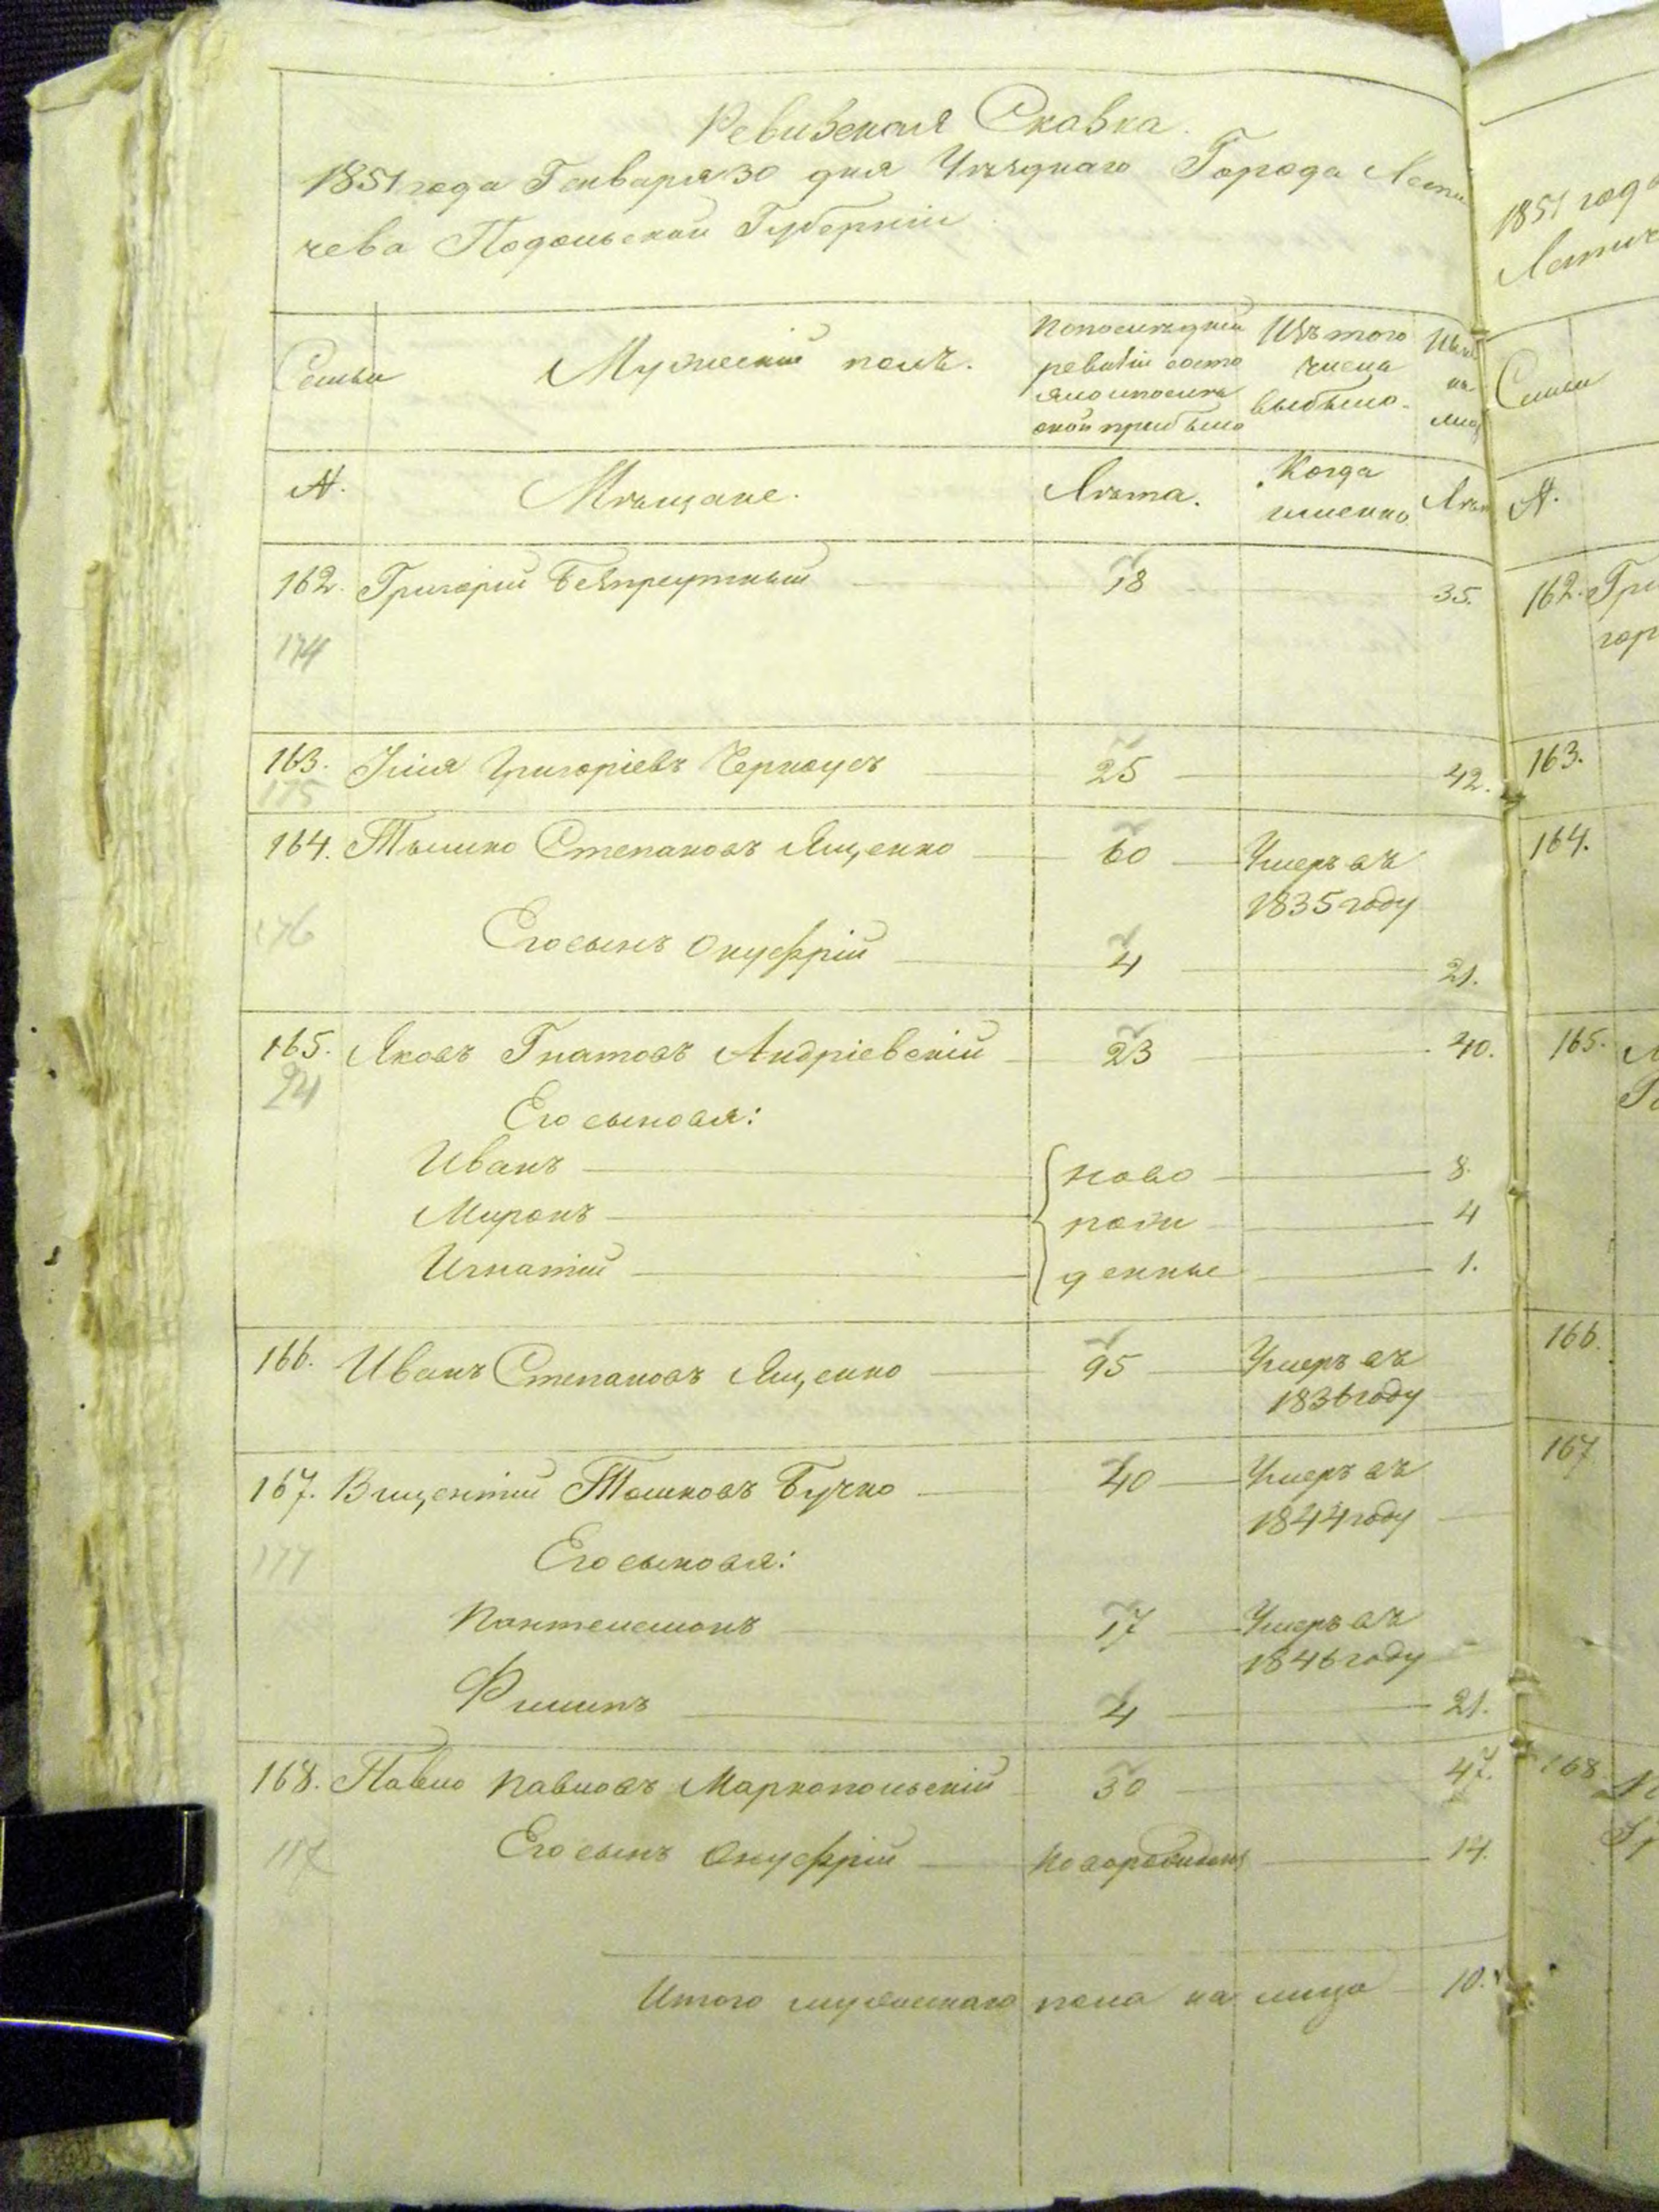 Ревизская Сказка.
1851 года Генваря 30 дня Уѣзднаго Города Лети
чева Подольской Губерніи
Семьи
Мужескій полъ.
По послѣдней
ревизіи состо
яло и послѣ
оной прибыло
Изъ того
числа
выбыло.
Нынѣ
на
лиц
№.
Мѣщане.
Лѣта.
Когда
именно.
Лѣта
162. Григорій Безпрутный 18 35.
174
163. Илія Григоріевъ Черноусъ 25 42.
175
164. Тымко Степановъ Ященко 60 Умеръ въ
1835 году
176
Его сынъ Онуфрій 4 21.
165. Яковъ Гнатовъ Андріевскій 23 40.
24
Его сыновья:
Иванъ ново 8.
Миронъ рож 4
Игнатій денные 1.
166. Иванъ Степановъ Ященко 95 Умеръ въ
1836 году
167. Вицентій Томковъ Бучко 40 Умеръ въ
1844 году
177
Его сыновья:
Пантелемонъ 17 Умеръ въ
1846 году
Филипъ 4 21.
168. Павло Павловъ Маркопольскій 30 47.
117
Его сынъ Онуфрій новорожденны 14.
Итого мужескаго пола на лицо 10.
1851 года
Летич
Семьи
№.
162. Гри
гор
163.
164.
165.
166.
167
168